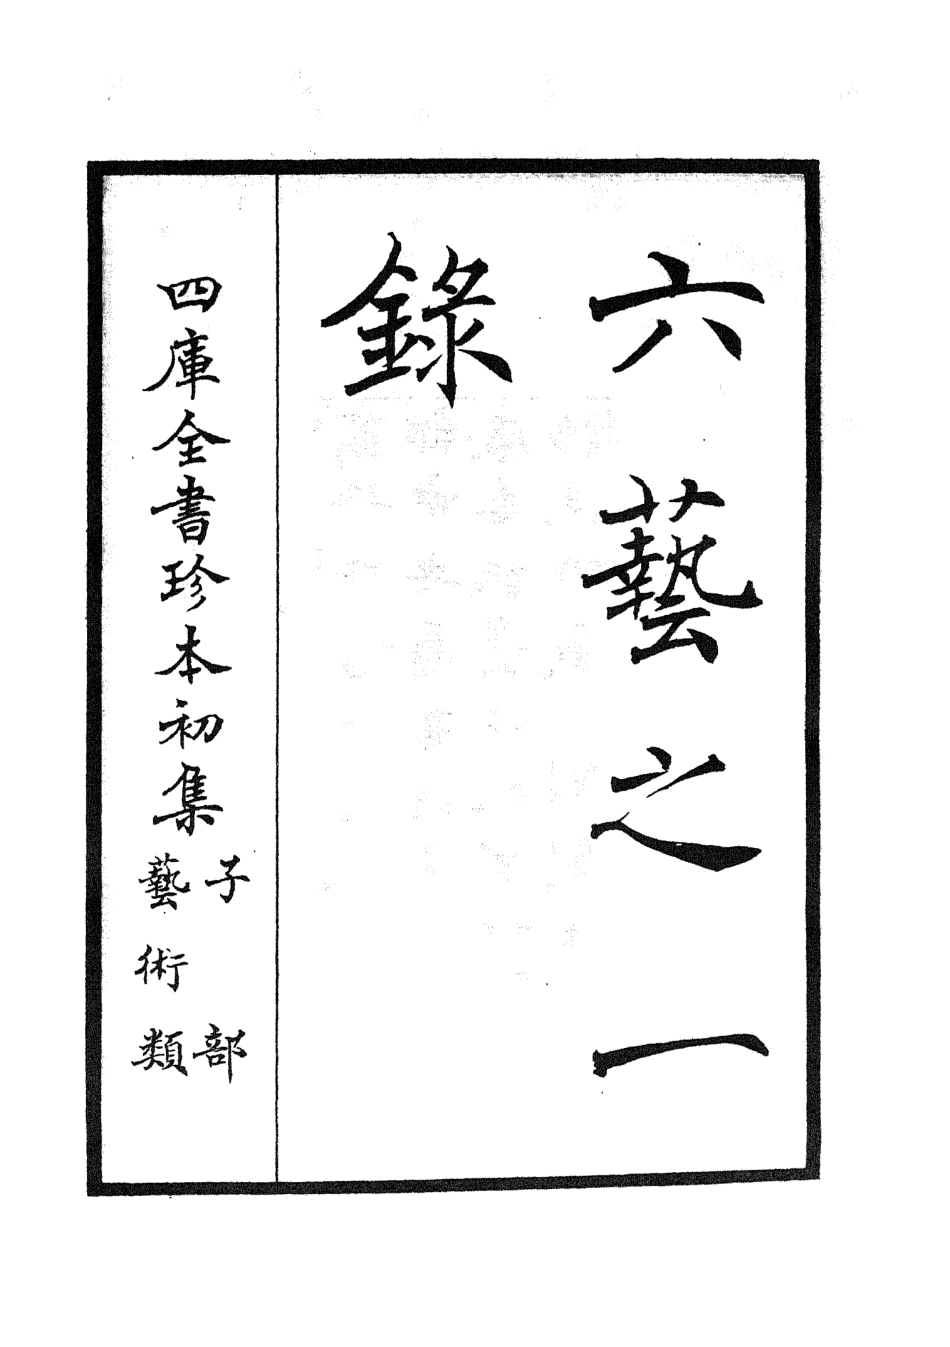 六藝之一
錄
四庫全書珍本初集
子部
藝術類